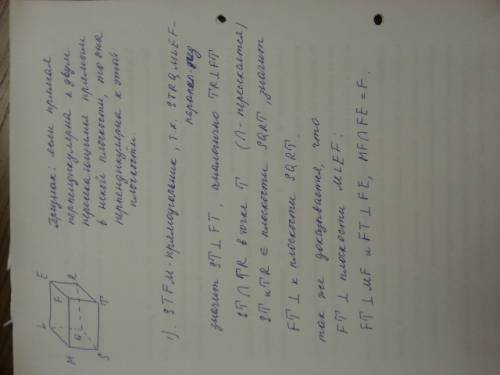 Признак: если прямая
перпендикулярна к двум
пересекающимся прямым
в некой плоскости, то она
перпендикулярна к этой
плоскости
E
R
L
F
T
M
Q
S
1). STFM - прямоугольник, т.к. STRQMLEF-
параллел-пед
значит ST⊥FT, аналогично TR⊥FT
ST∩TR в точке T (∩-пересекается)
ST и TR ∈ плоскости SQRT, значит
FT ⊥ к плоскости SQRT.
так же доказывается, что
FT ⊥ плоскости MLEF:
FT ⊥ MF и FT ⊥ FE, MF∩FE = F.